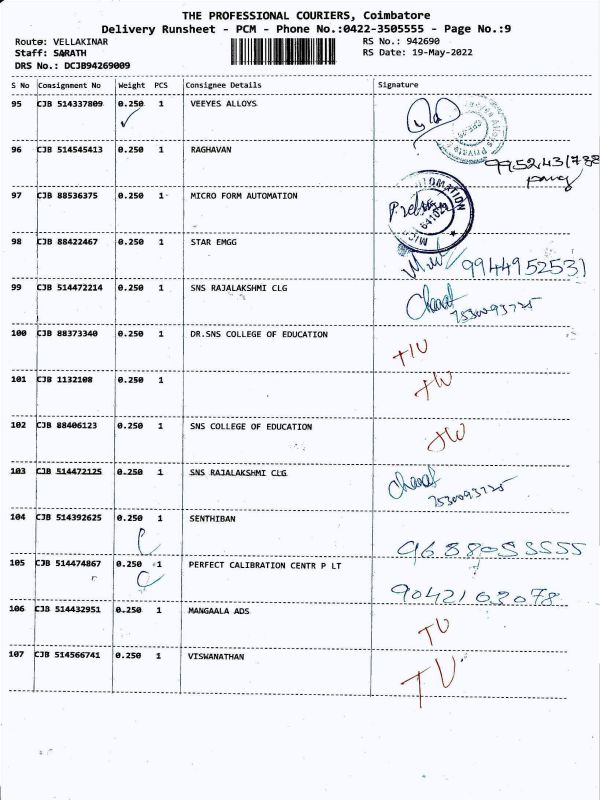 THE PROFESSIONAL COURIERS, Coimbatore
Delivery Runsheet - PCM - Phone No.:0422-3505555 - Page No.:9
Route: VELLAKINAR RS No.: 942690
Staff: SARATH RS Date: 19-May-2022
DRS No.: DCJB94269009
S No Consignment No Weight PCS Consignee Details Signature
95 CJB 514337809 0.250 1 VEEYES ALLOYS
96 CJB 514545413 0.250 1 RAGHAVAN 9952431788
97 CJB 88536375 0.250 1 MICRO FORM AUTOMATION
98 CJB 88422467 0.250 1 STAR EMGG 9944952531
99 CJB 514472214 0.250 1 SNS RAJALAKSHMI CLG
7530093725
100 CJB 88373340 0.250 1 DR.SNS COLLEGE OF EDUCATION
101 CJB 1132108 0.250 1
102 CJB 88406123 0.250 1 SNS COLLEGE OF EDUCATION
103 CJB 514472125 0.250 1 SNS RAJALAKSHMI CLG
7530093725
104 CJB 514392625 0.250 1 SENTHIBAN 9688055555
105 CJB 514474867 0.250 1 PERFECT CALIBRATION CENTR P LT 9042103078
106 CJB 514432951 0.250 1 MANGAALA ADS TU
107 CJB 514566741 0.250 1 VISWANATHAN TU